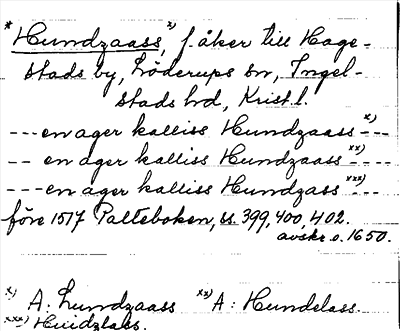 * Hundzaass, x) f. åker till Hage-
stads by, Löderups sn, Ingel-
stads hd, Krist.l.
---en ager kalliss Hundzaass x)---
-- en ager kalliss Hundzaass xx)----
---en ager kalliss Hundzass xxx)---
före 1517 Palteboken, ss. 399, 400, 402.
avskr. o. 1650.
x) A. Lundzaass xx) A: Hundelass.
xxx) Huidzlass.